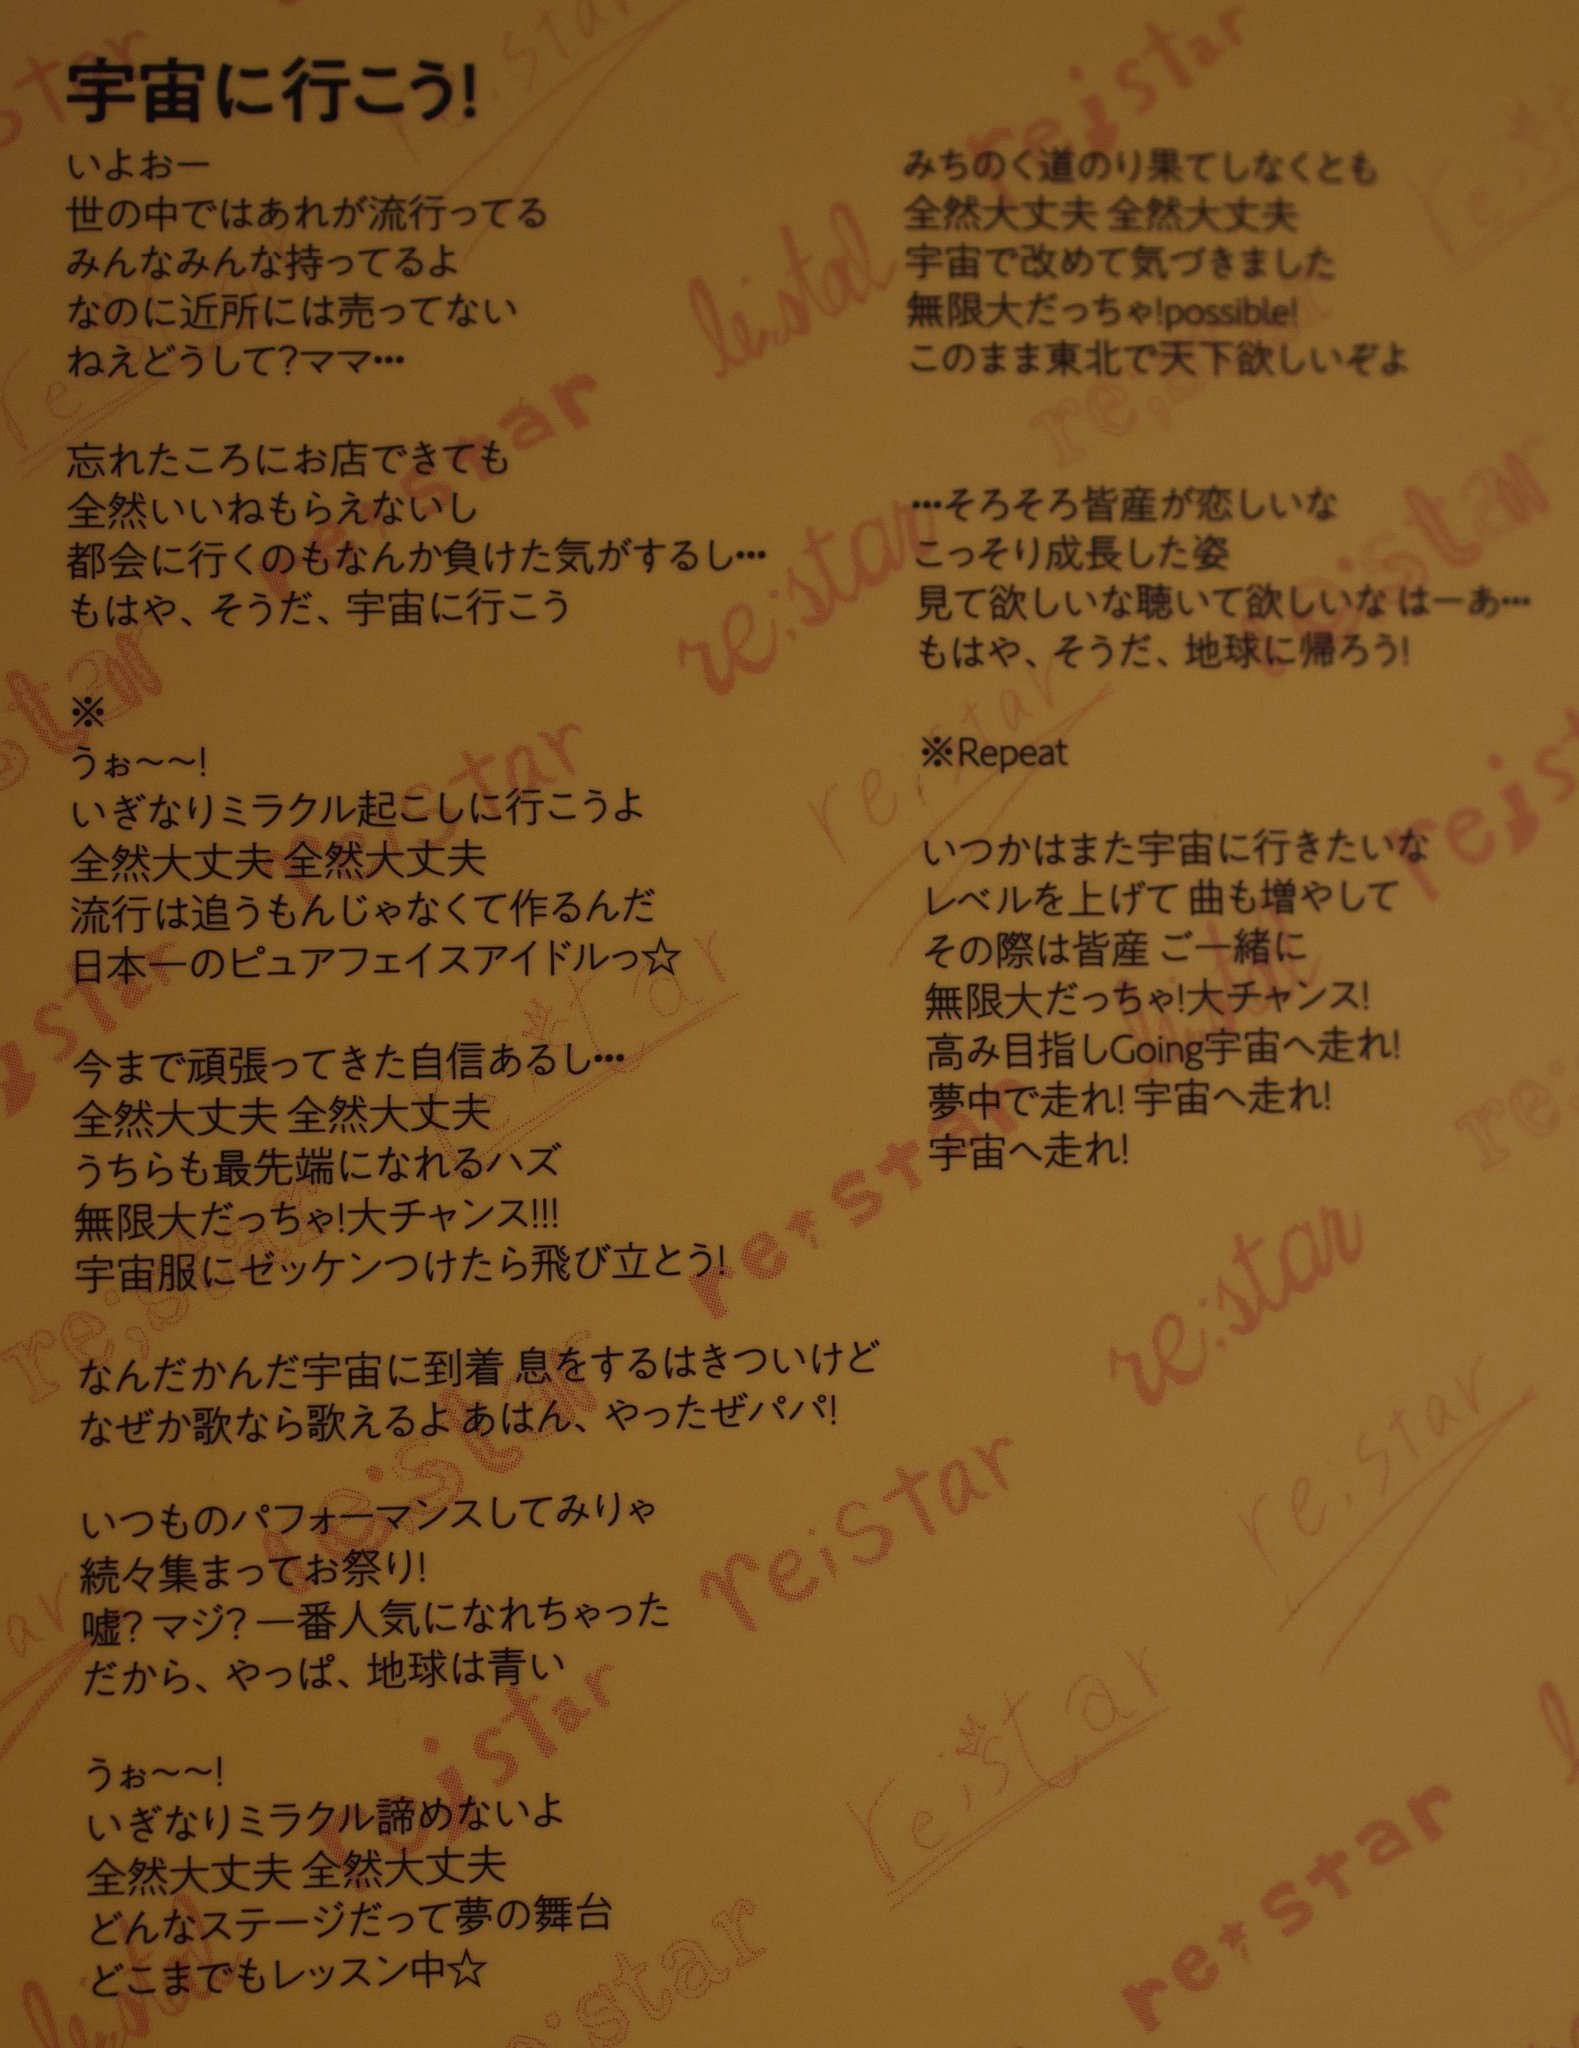 宇宙に行こう!
いよおー
世の中ではあれが流行ってる
みんなみんな持ってるよ
なのに近所には売ってない
ねえどうして?ママ…
忘れたころにお店できても
全然いいねもらえないし
都会に行くのもなんか負けた気がするし…
もはや、そうだ、宇宙に行こう
※
うぉ～～!
いぎなりミラクル起こしに行こうよ
全然大丈夫 全然大丈夫
流行は追うもんじゃなくて作るんだ
日本一のピュアフェイスアイドルっ☆
今まで頑張ってきた自信あるし…
全然大丈夫 全然大丈夫
うちらも最先端になれるハズ
無限大だっちゃ!大チャンス!!!
宇宙服にゼッケンつけたら飛び立とう!
なんだかんだ宇宙に到着 息をするはきついけど
なぜか歌なら歌えるよ あはん、やったぜパパ!
いつものパフォーマンスしてみりゃ
続々集まってお祭り!
嘘? マジ? 一番人気になれちゃった
だから、やっぱ、地球は青い
うぉ～～!
いぎなりミラクル諦めないよ
全然大丈夫 全然大丈夫
どんなステージだって夢の舞台
どこまでもレッスン中☆
みちのく道のり果てしなくとも
全然大丈夫 全然大丈夫
宇宙で改めて気づきました
無限大だっちゃ!possible!
このまま東北で天下欲しいぞよ
…そろそろ皆産が恋しいな
こっそり成長した姿
見て欲しいな聴いて欲しいな はーあ…
もはや、そうだ、地球に帰ろう!
※Repeat
いつかはまた宇宙に行きたいな
レベルを上げて 曲も増やして
その際は皆産 ご一緒に
無限大だっちゃ!大チャンス!
高み目指しGoing宇宙へ走れ!
夢中で走れ! 宇宙へ走れ!
宇宙へ走れ!
re;star